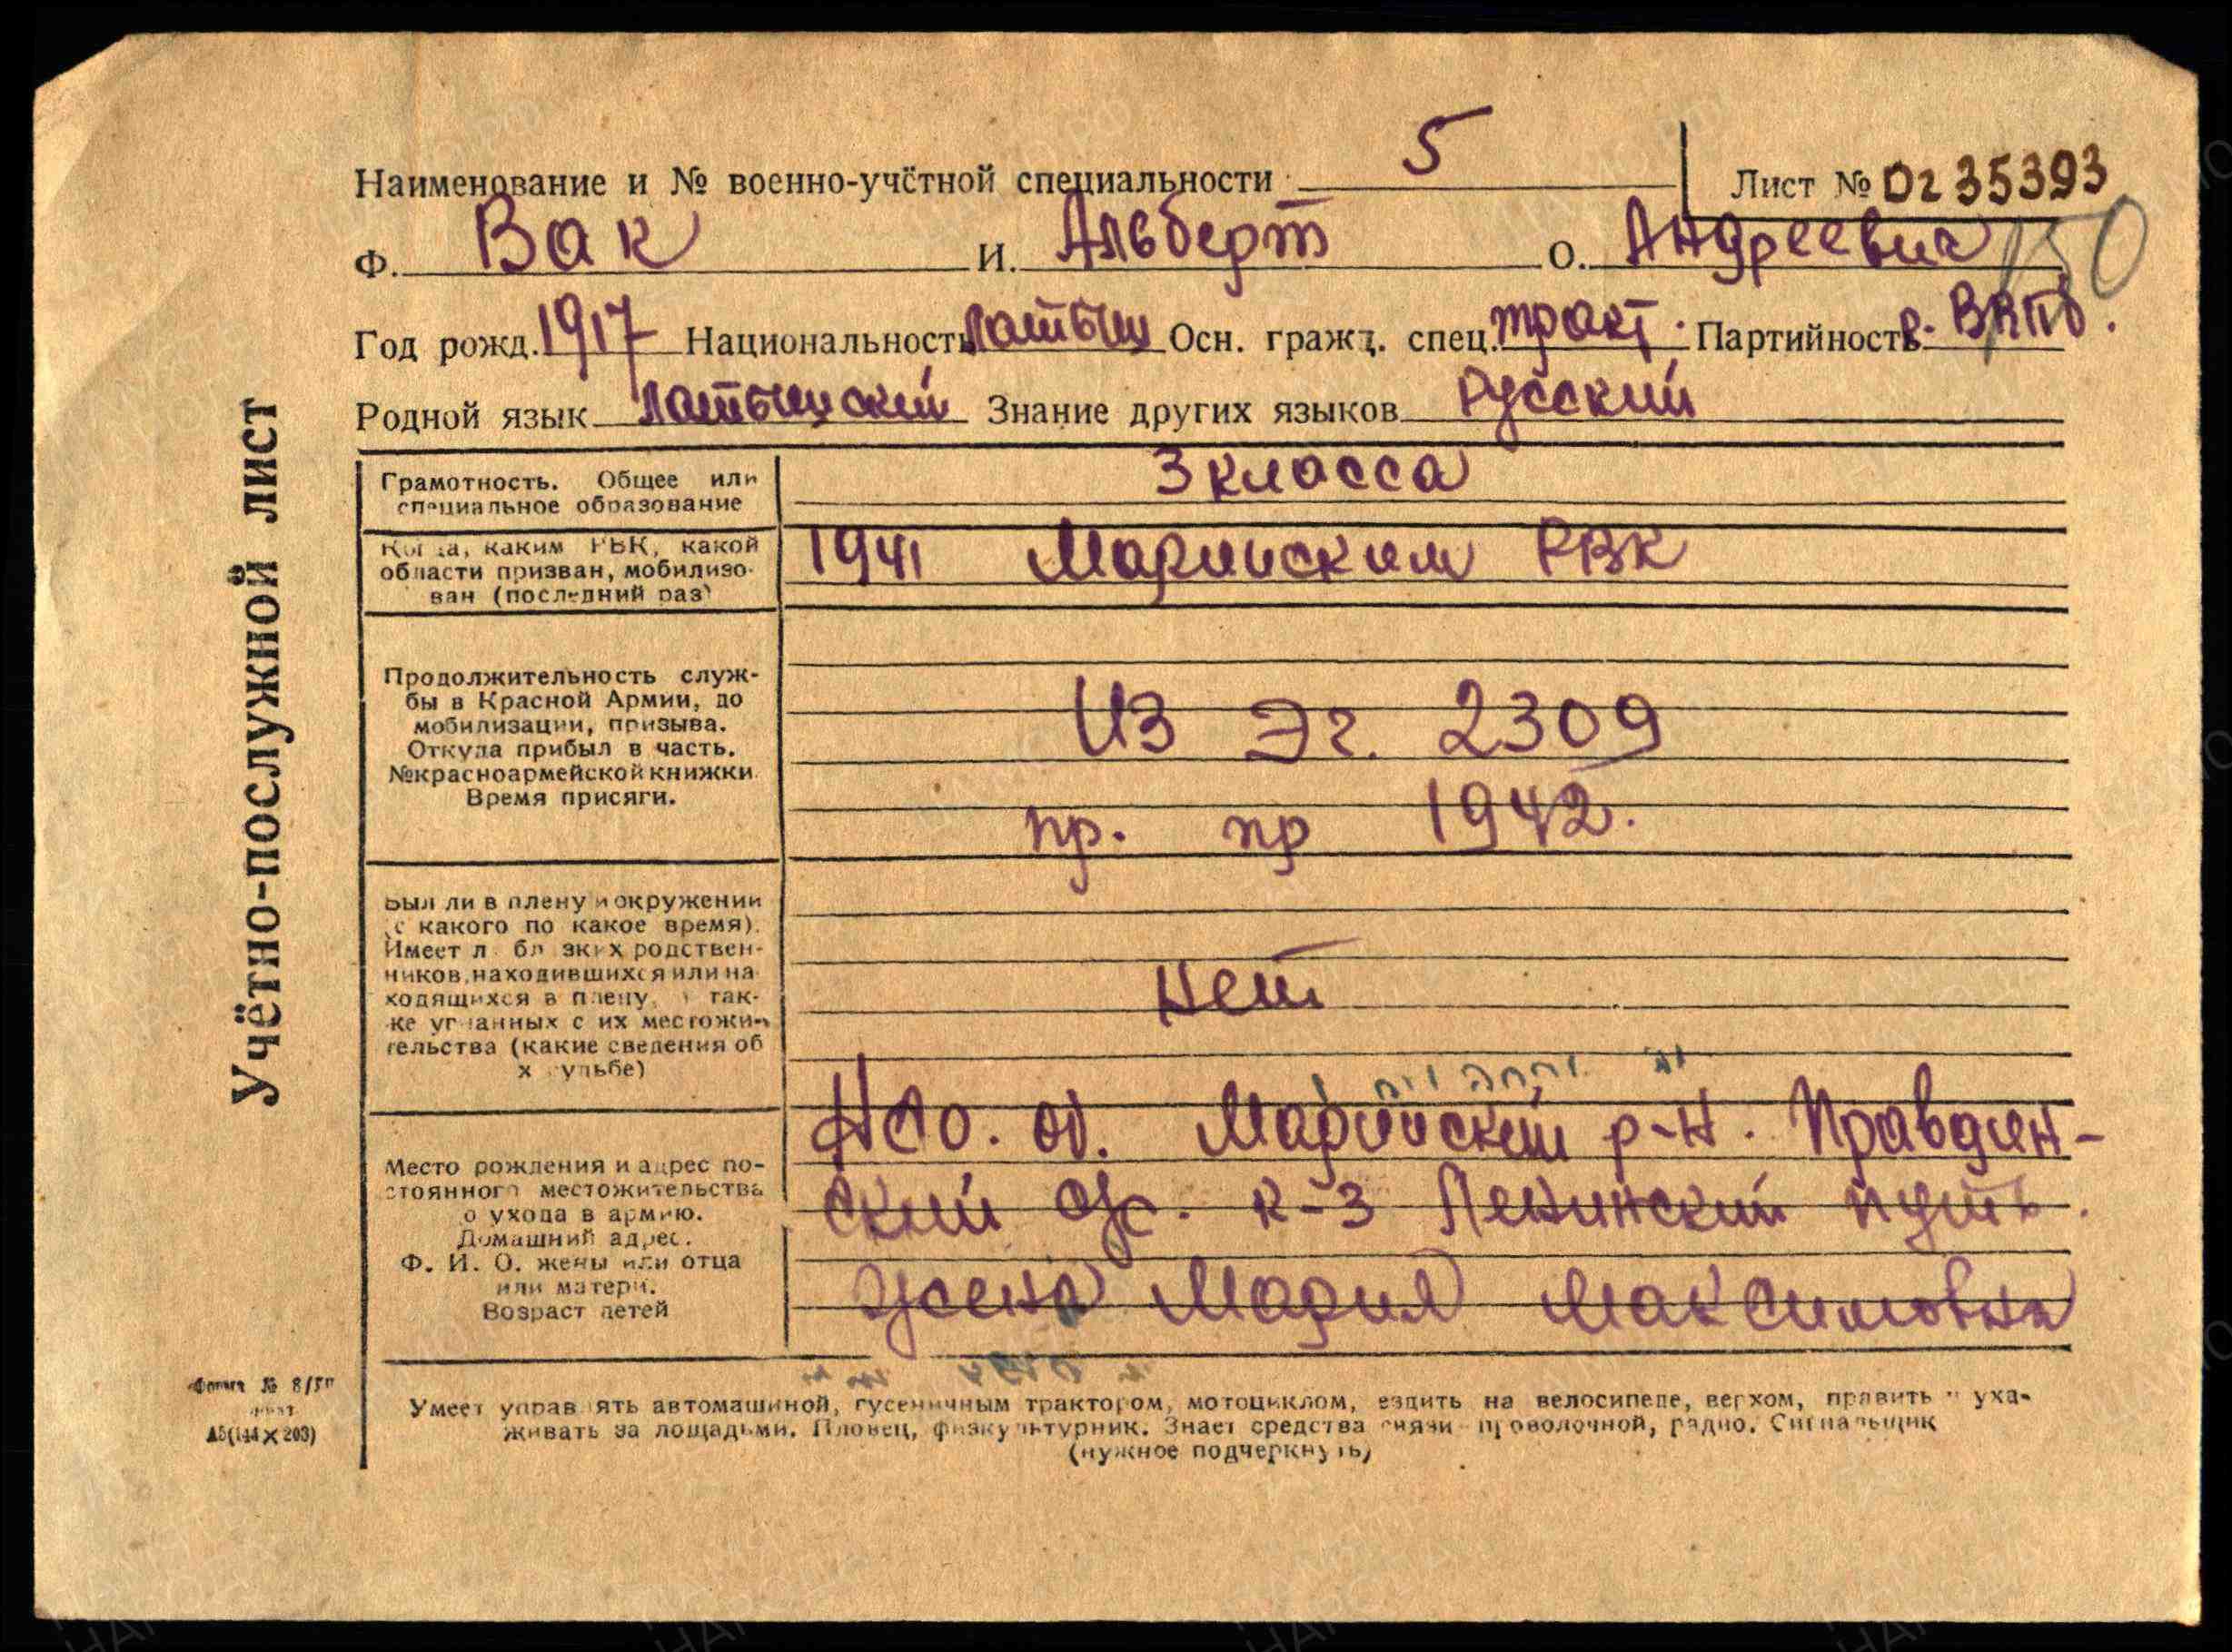 Учётно-послужной лист
Наименование и № военно-учётной специальности 5 Лист № 0235393
Ф. Вак И. Альберт О. Андреевич 50
Год рожд. 1917 Национальность Латыш Осн. гражд. спец. тракт. Партийность ВКПб.
Родной язык латышский Знание других языков Русский
Грамотность. Общее или
специальное образование
3 класса
Когда, каким РВК, какой
области призван, мобилизо-
ван (последний раз)
1941 Мариинским РВК
Продолжительность служ-
бы в Красной Армии, до
мобилизации, призыва.
Откуда прибыл в часть.
№ красноармейской книжки.
Время присяги.
Из Эг. 2309
пр. пр 1942.
Был ли в плену и окружении
(с какого по какое время).
Имеет ли близких родствен-
ников, находившихся или на-
ходящихся в плену, а так-
же угнанных с их местожи-
тельства (какие сведения об
их судьбе)
Нет
Место рождения и адрес по-
стоянного местожительства
до ухода в армию.
Домашний адрес.
Ф. И. О. жены или отца
или матери.
Возраст детей
Нсо. об. Мариинский р-н. Правдин-
ский с/с. к-з Ленинский путь.
жена Мария Максимовна
Форма № 8/БП
А5 (144×203)
Умеет управлять автомашиной, гусеничным трактором, мотоциклом, ездить на велосипеде, верхом, править и уха-
живать за лошадьми. Пловец, физкультурник. Знает средства связи проволочной, радио. Сигнальщик
(нужное подчеркнуть)